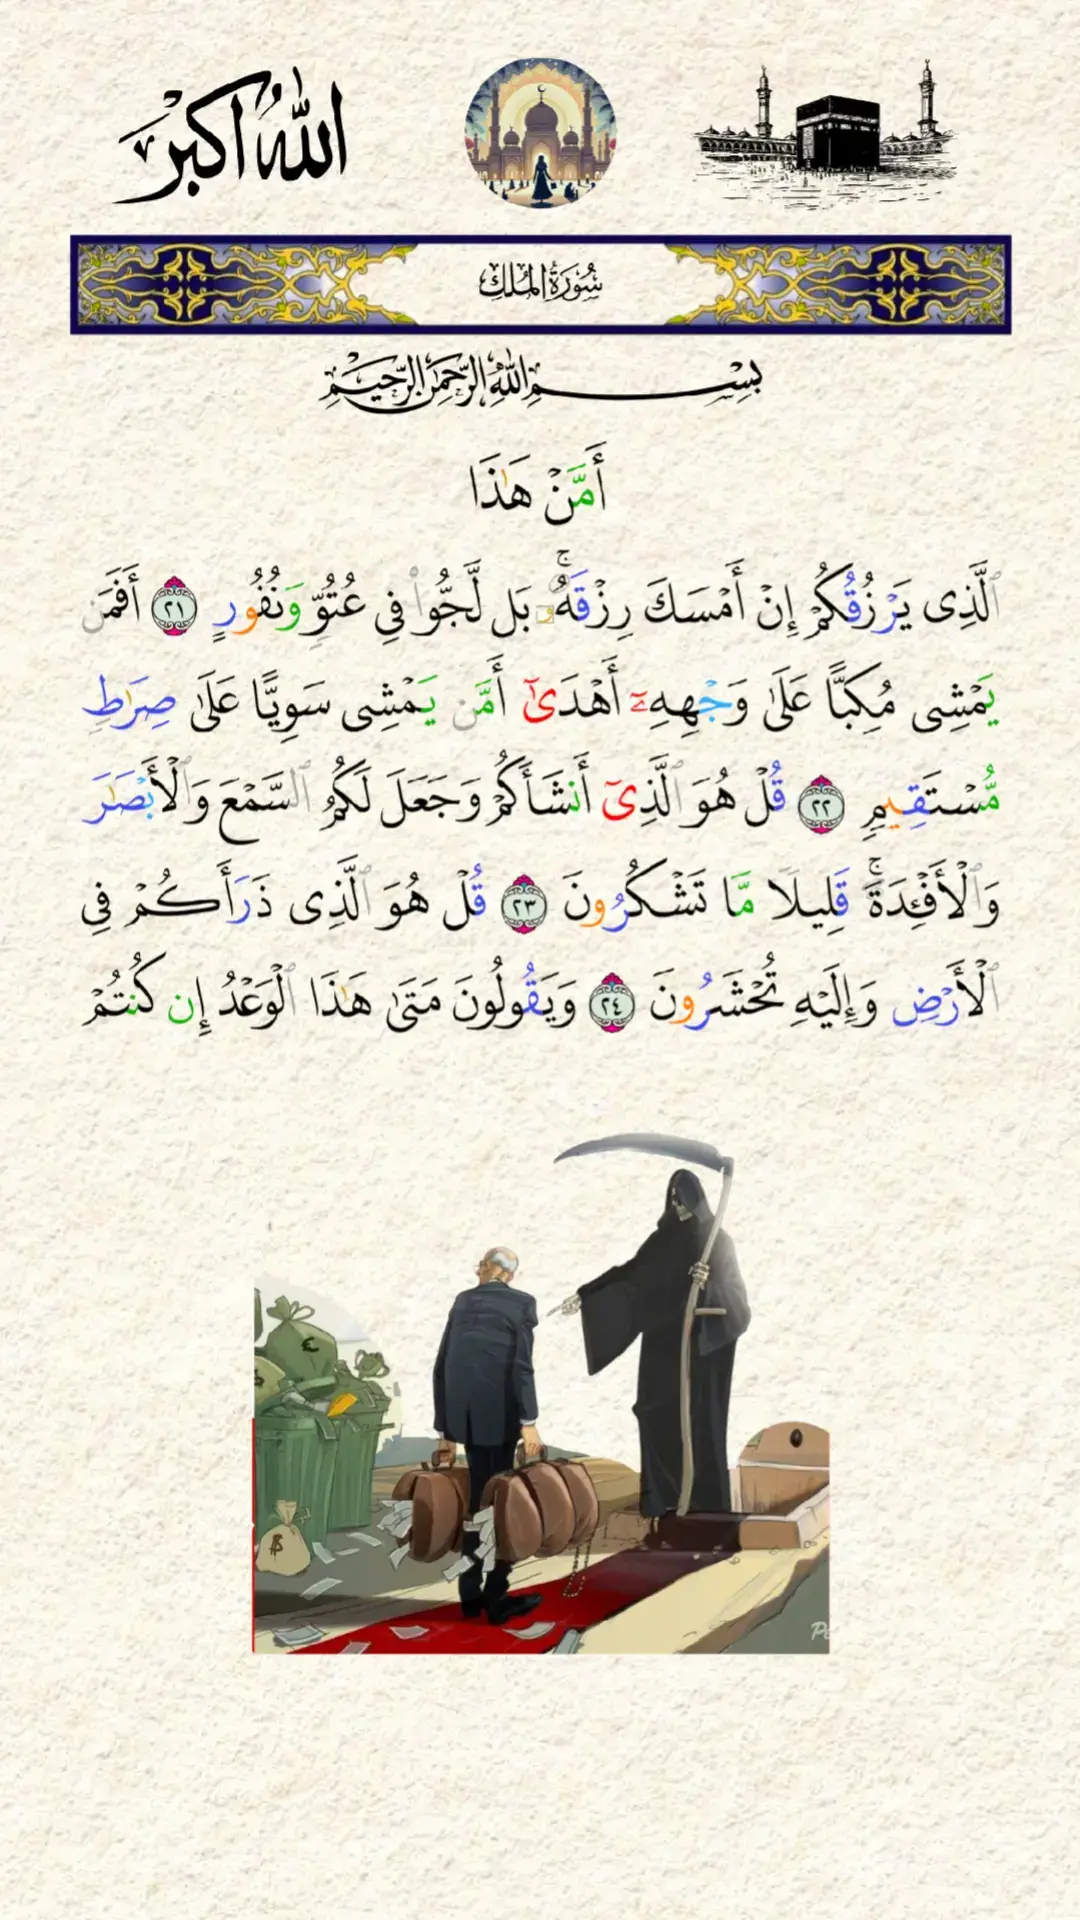 اللهُ اكبرَ
سُورَةُ المُلكِ
بِسۡمِ اللَّهِ الرَّحۡمَٰنِ الرَّحِيمِ
أَمَّنۡ هَٰذَا
ٱلَّذِى يَرۡزُقُكُمۡ إِنۡ أَمۡسَكَ رِزۡقَهُۥۚ بَل لَّجُّوا۟ فِى عُتُوٍّ وَنُفُورٍ ٢١ أَفَمَن
يَمۡشِى مُكِبًّا عَلَىٰ وَجۡهِهِۦٓ أَهۡدَىٰٓ أَمَّن يَمۡشِى سَوِيًّا عَلَىٰ صِرَٰطٍ
مُّسۡتَقِيمٍ ٢٢ قُلۡ هُوَ ٱلَّذِىٓ أَنشَأَكُمۡ وَجَعَلَ لَكُمُ ٱلسَّمۡعَ وَٱلۡأَبۡصَٰرَ
وَٱلۡأَفۡـِٔدَةَۚ قَلِيلًا مَّا تَشۡكُرُونَ ٢٣ قُلۡ هُوَ ٱلَّذِى ذَرَأَكُمۡ فِى
ٱلۡأَرۡضِ وَإِلَيۡهِ تُحۡشَرُونَ ٢٤ وَيَقُولُونَ مَتَىٰ هَٰذَا ٱلۡوَعۡدُ إِن كُنتُمۡ